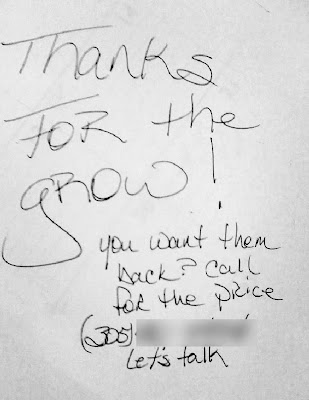 Thanks
FOR the
GROW!
you want them
back? Call
for the price
(305)
Let's talk